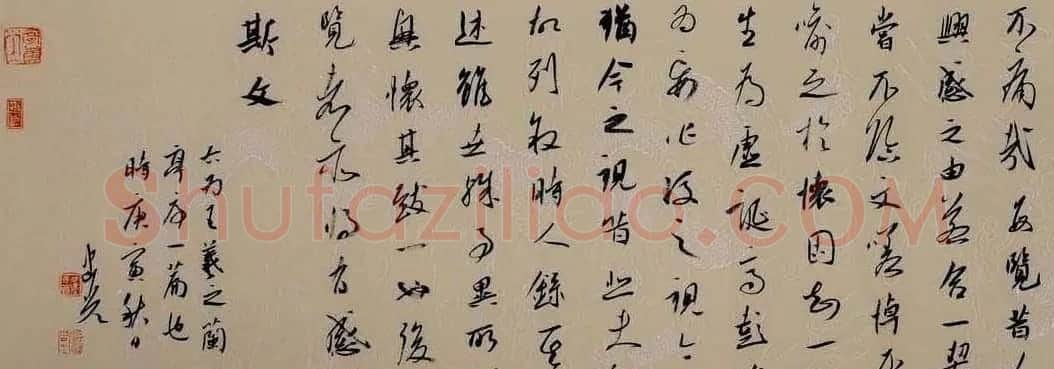 不痛哉每覽昔
興感之由若合一契
嘗不臨文嗟悼不
喻之於懷固知一
生為虛誕齊彭
為妄作後之視今
猶今之視昔悲夫
故列敘時人錄其
述雖世殊事異所
興懷其致一也後
覽者亦將有感
斯文
右为王羲之蘭
亭序一篇也
時庚寅秋日
Shufaziliao.COM